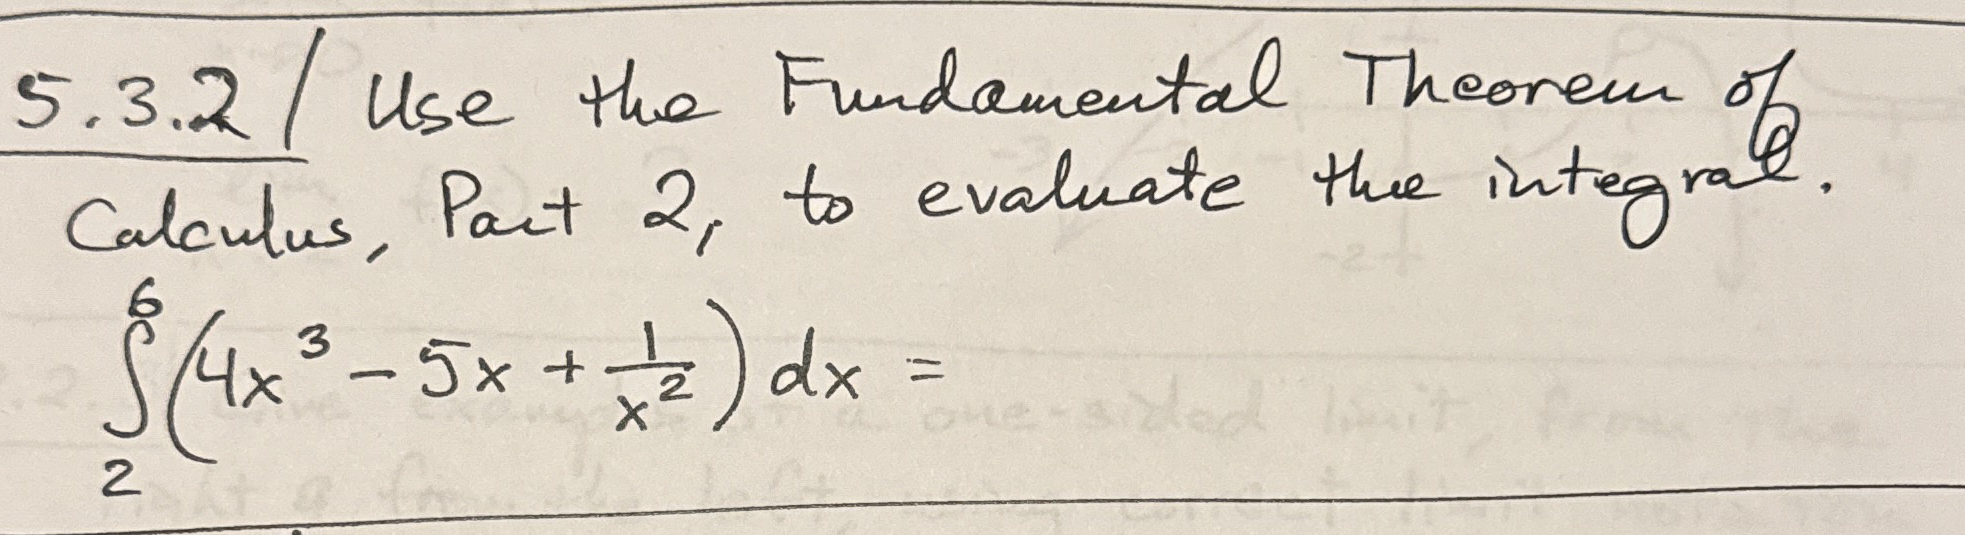 5.3.2/ Use the Fundamental Theorem of
Calculus, Part 2, to evaluate the integral.
∫₂⁶ (4x³ - 5x + 1/x²) dx =